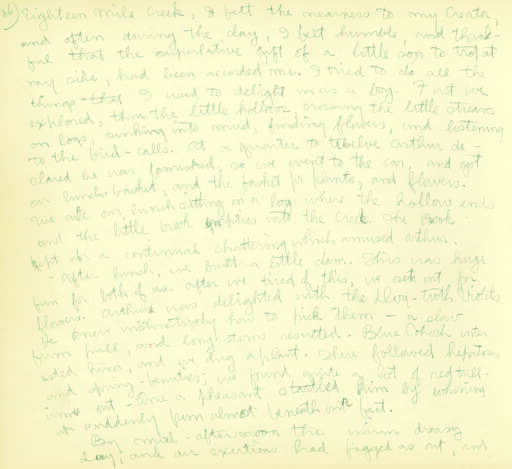 Eighteen Mile Creek, I felt the nearness to my Creator,
and often during the day, I felt humble, and thank-
ful that the superlative gift of a little son to trot at
my side, had been accorded me. I tried to do all the
things that I used to delight in as a boy. First we
explored, thru the little hollows, crossing the little streams
on logs, sinking into mud, finding flowers, and listening
to the bird-calls. At a quarter to twelve Arthur de-
clared he was famished, so we went to the car, and got
our lunch-basket, and the basket for plants, and flowers.
We ate our lunch sitting on a log where the hollow ends
and the little brook empties into the Creek. The brook
kept up a continual chattering which amused Arthur.
- After lunch, we built a little dam. This was huge
fun for both of us. After we tired of this, we set out for
flowers. Arthur was delighted with the Dog-Tooth Violets
He knew instinctively how to pick them - a slow
firm pull, and long stems resulted. Blue Cohosh inter
ested him, and we dug a plant. Then followed hepaticas
and spring-beauties; we found quite a lot of red tril-
iums out - Once a pheasant startled him by whirring
up suddenly from almost beneath our feet.
By mid-afternoon the warm drowsy
day, and our exertions had fagged us out, and